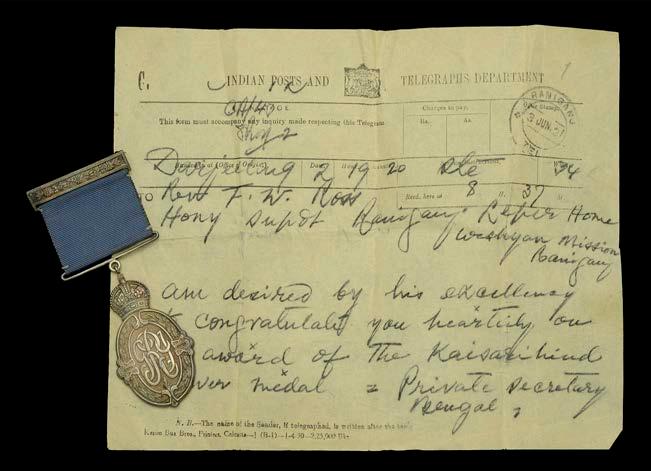 C.
INDIAN POSTS AND TELEGRAPHS DEPARTMENT
Charges to pay.
This form must accompany any inquiry made respecting this Telegram
Rs. As.
RANIGANJ
3 JUN. 31
Darjeeling 2 19 20 Ste 34
TO Rev F. W. Ross
Recd. here at 8 H. 37 M.
Hony Supdt Raniganj Leper Home
Wesleyan Mission
Raniganj
am desired by his excellency
congratulate you heartily on
award of The Kaisarihind
ver medal = Private Secretary
Bengal,
N. B.—The name of the Sender, if telegraphed, is written after the text.
Kerim Bux Bros., Printers, Calcutta—1 (B-1)—1-4-30—2,25,000 Bks